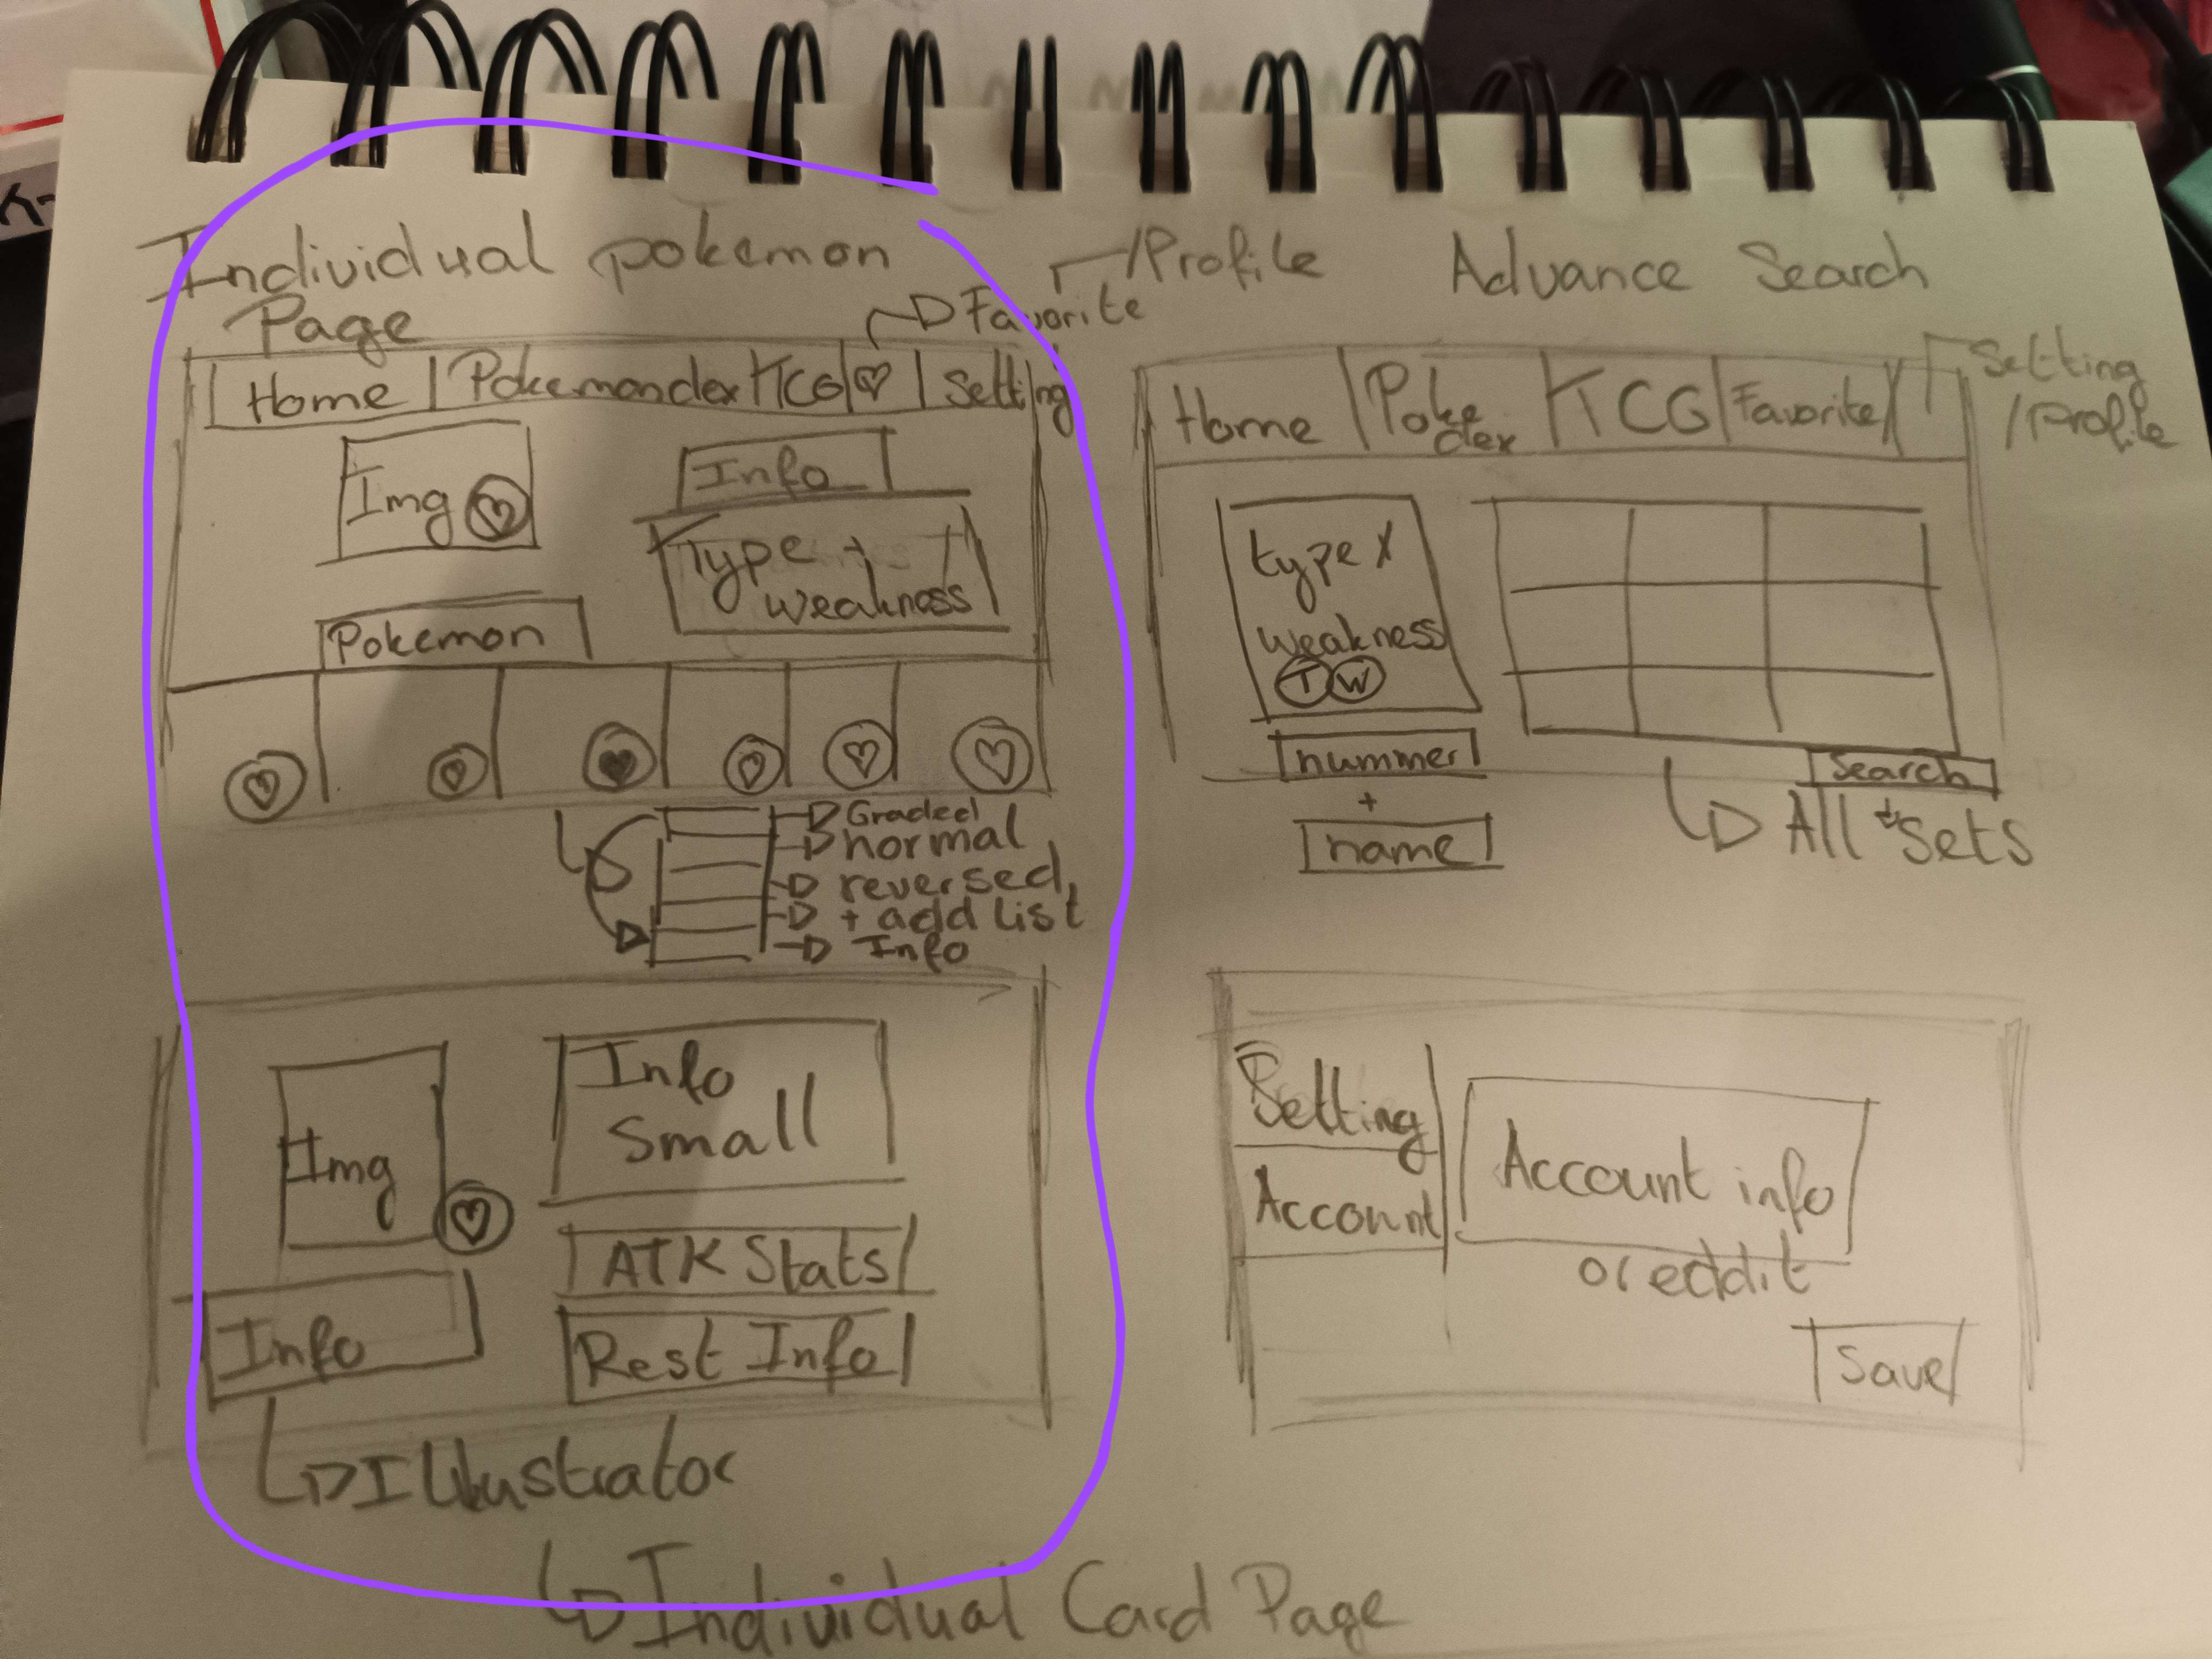 Individual pokemon
Page
Favorite
/Profile
Home | Pokemondex | TCG | ♡ | Setting
Img ♡
Info
Type +
weakness
Pokemon
Graded
normal
reversed
+ add list
Info
Img
Info
Small
ATK Stats
Rest Info
Info
Illustrator
Individual Card Page
Advance Search
Setting
/Profile
Home | Poke
dex | TCG | Favorite
type X
weakness
T W
nummer
+
name
Search
All sets
Setting
Account
Account info
or eddit
Save